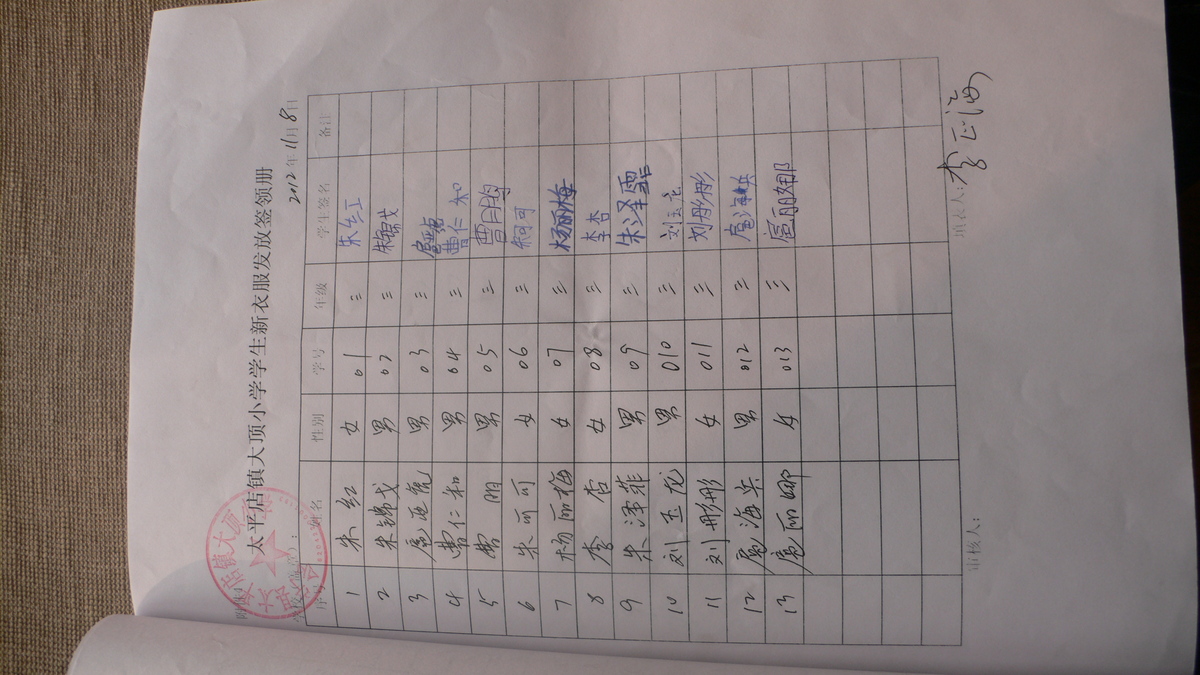 太平店镇大顶小学学生新衣服发放签领册
2012年11月8日
序号 姓名 性别 学号 年级 学生签名 备注
1 朱红 女 01 三 朱红
2 朱锦戈 男 02 三
3 男 03 三
4 曹仁和 男 04 三 曹仁和
5 男 05 三
6 朱可可 女 06 三
7 杨丽梅 女 07 三 杨丽梅
8 李杏 女 08 三 李杏
9 朱泽菲 男 09 三 朱泽霏
10 刘玉龙 男 010 三 刘玉龙
11 刘彤彤 女 011 三 刘彤彤
12 扈海兵 男 012 三 扈海兵
13 扈丽娜 女 013 三 扈丽娜
审核人: 填表人:李正海